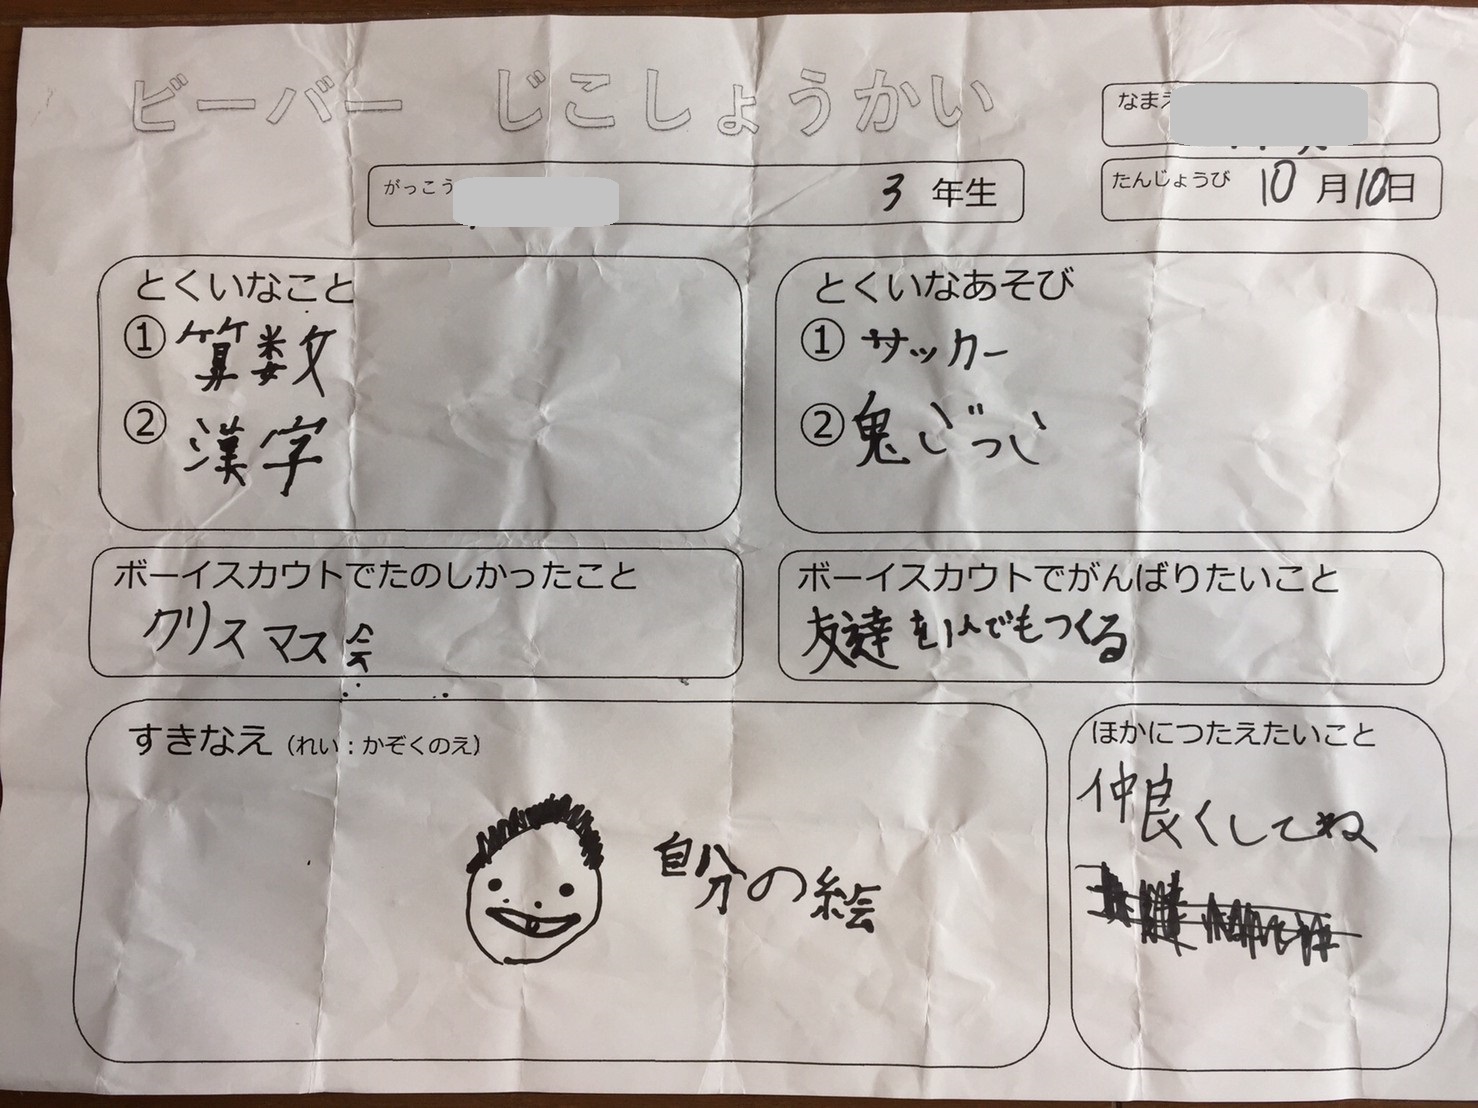 ビーバー じこしょうかい
なまえ
がっこう 3 年生
たんじょうび 10 月 10 日
とくいなこと
① 算数
② 漢字
とくいなあそび
① サッカー
② 鬼ごっこ
ボーイスカウトでたのしかったこと
クリスマス会
ボーイスカウトでがんばりたいこと
友達を1人でもつくる
すきなえ（れい：かぞくのえ）
自分の絵
ほかにつたえたいこと
仲良くしてね